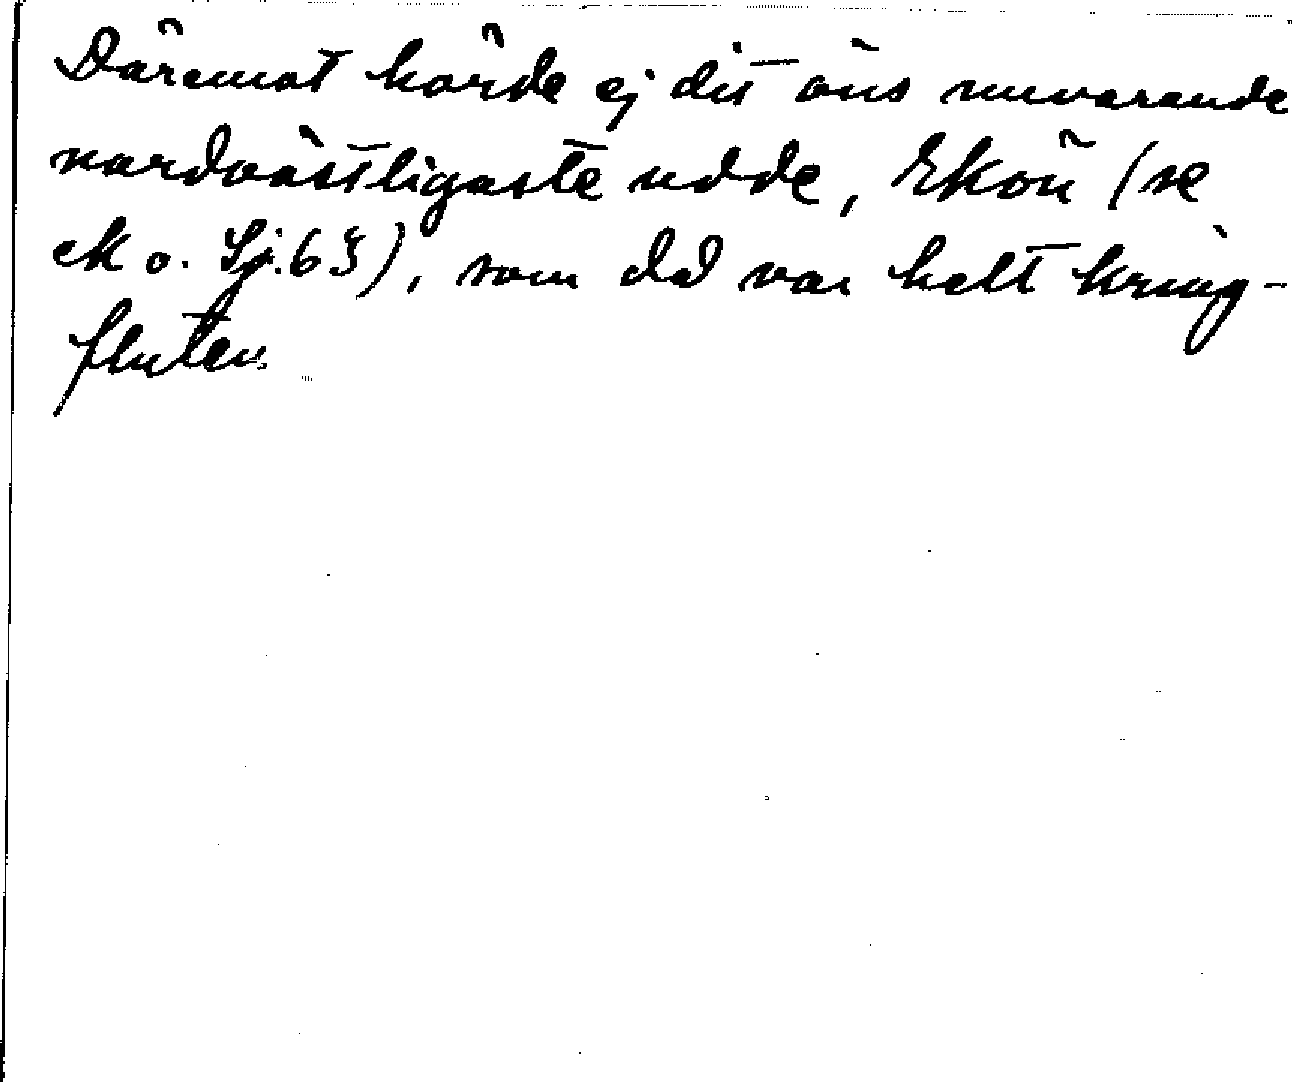 Däremot hörde ej dit öns nuvarande
nordvästligaste udde, Ekön (se
ek o. Sj. 63), som då var helt kring-
fluten.